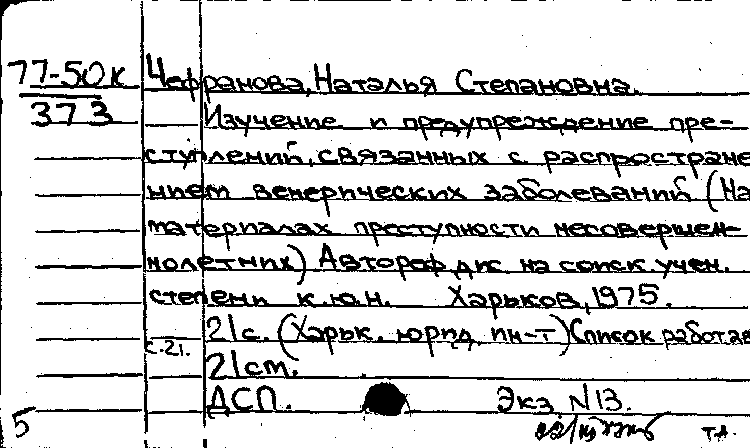 77-50к
373
Чефранова, Наталья Степановна.
Изучение и предупреждение пре-
ступлений, связанных с распростране
нием венерических заболеваний (На
материалах преступности несовершен-
нолетних) Автореф дис. на соиск. учен.
степени к.ю.н. Харьков, 1975.
21с. (Харьк. юрид. ин-т) Список работ ав
с.21.
21см.
ДСП. Экз. N13.
5
т.д.